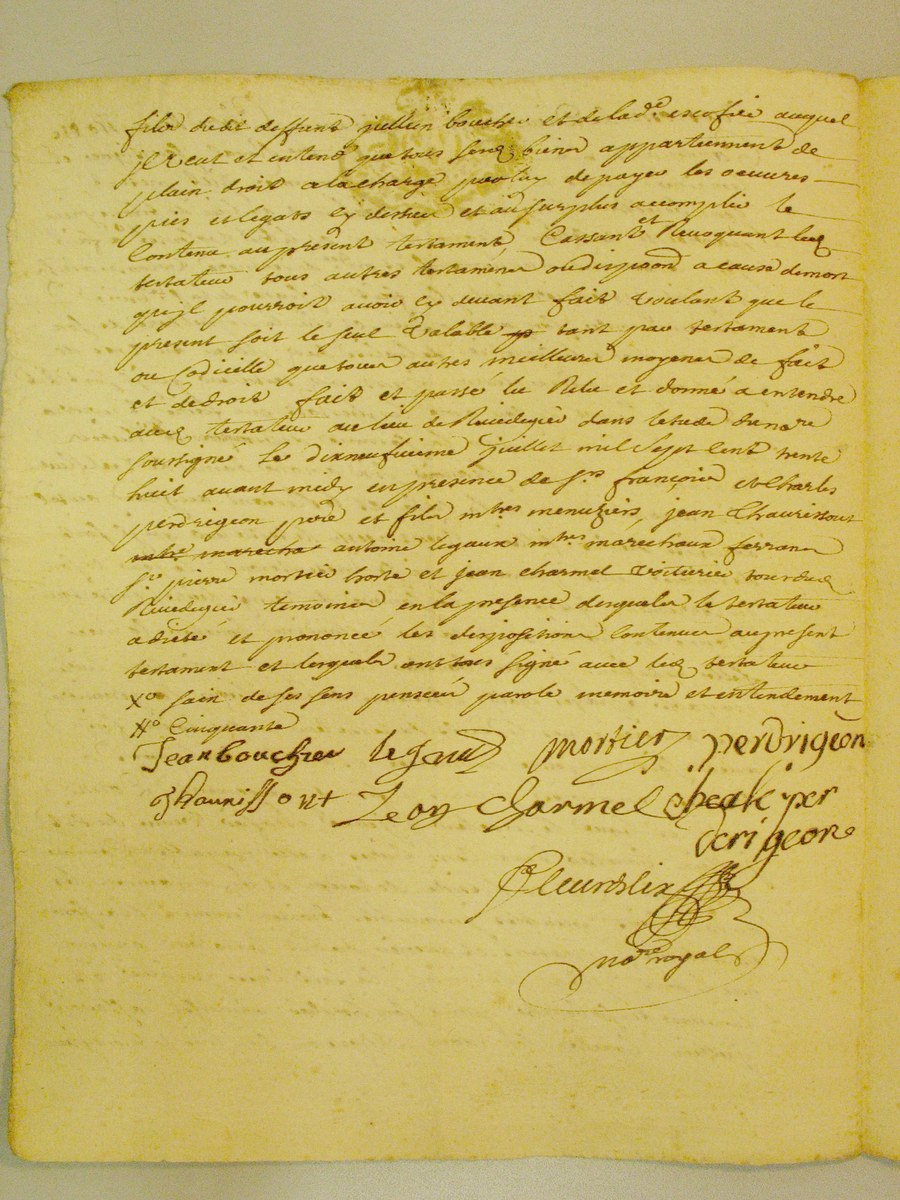 fils dudit deffunt jullien boucher et de lad.e escofié auquel
jl veut et entend que tous sesd biens appartiennent de
plain droit a la charge par luy de payer les oeuvres
pies et legats cy dessus et au surplus acomplir le
Contenu au present testament, Cassant et Revoquant led
testateur tous autres testaments ou disposons a cause de mort
qu'jl pourroit avoir cy devant fait voulant que le
present soit le seul valable tant par testament
ou Codicille que tous autres meilleurs moyens de fait
et de droit fait et passé lu Relu et donné a entendre
aud testateur au lieu de Rivedegié dans letude du nore
soussigné Le dixneufvieme juillet mil sept Cent trente
huit avant midy en presence de srs françois et Charles
perdrigeon pere et fils mtres menuziers, jean Chaurissout
mtre marechal antoine legaux mtres marechaux ferrans
sr pierre mortier hoste et jean charmel voiturier tous dud
Rivedegié temoins en la presence desquels le testateur
a dicté et prononcé les dispositions Contenues au present
testament et lesquels ont tous signé avec led testateur
Xo sain de ses sens pensées parole memoire et entendement
Xo Cinquante
Jean boucher legaud mortier perdrigeon
Chaurissout Jean Charmel per
drigeon
fleurdelix
nore royal